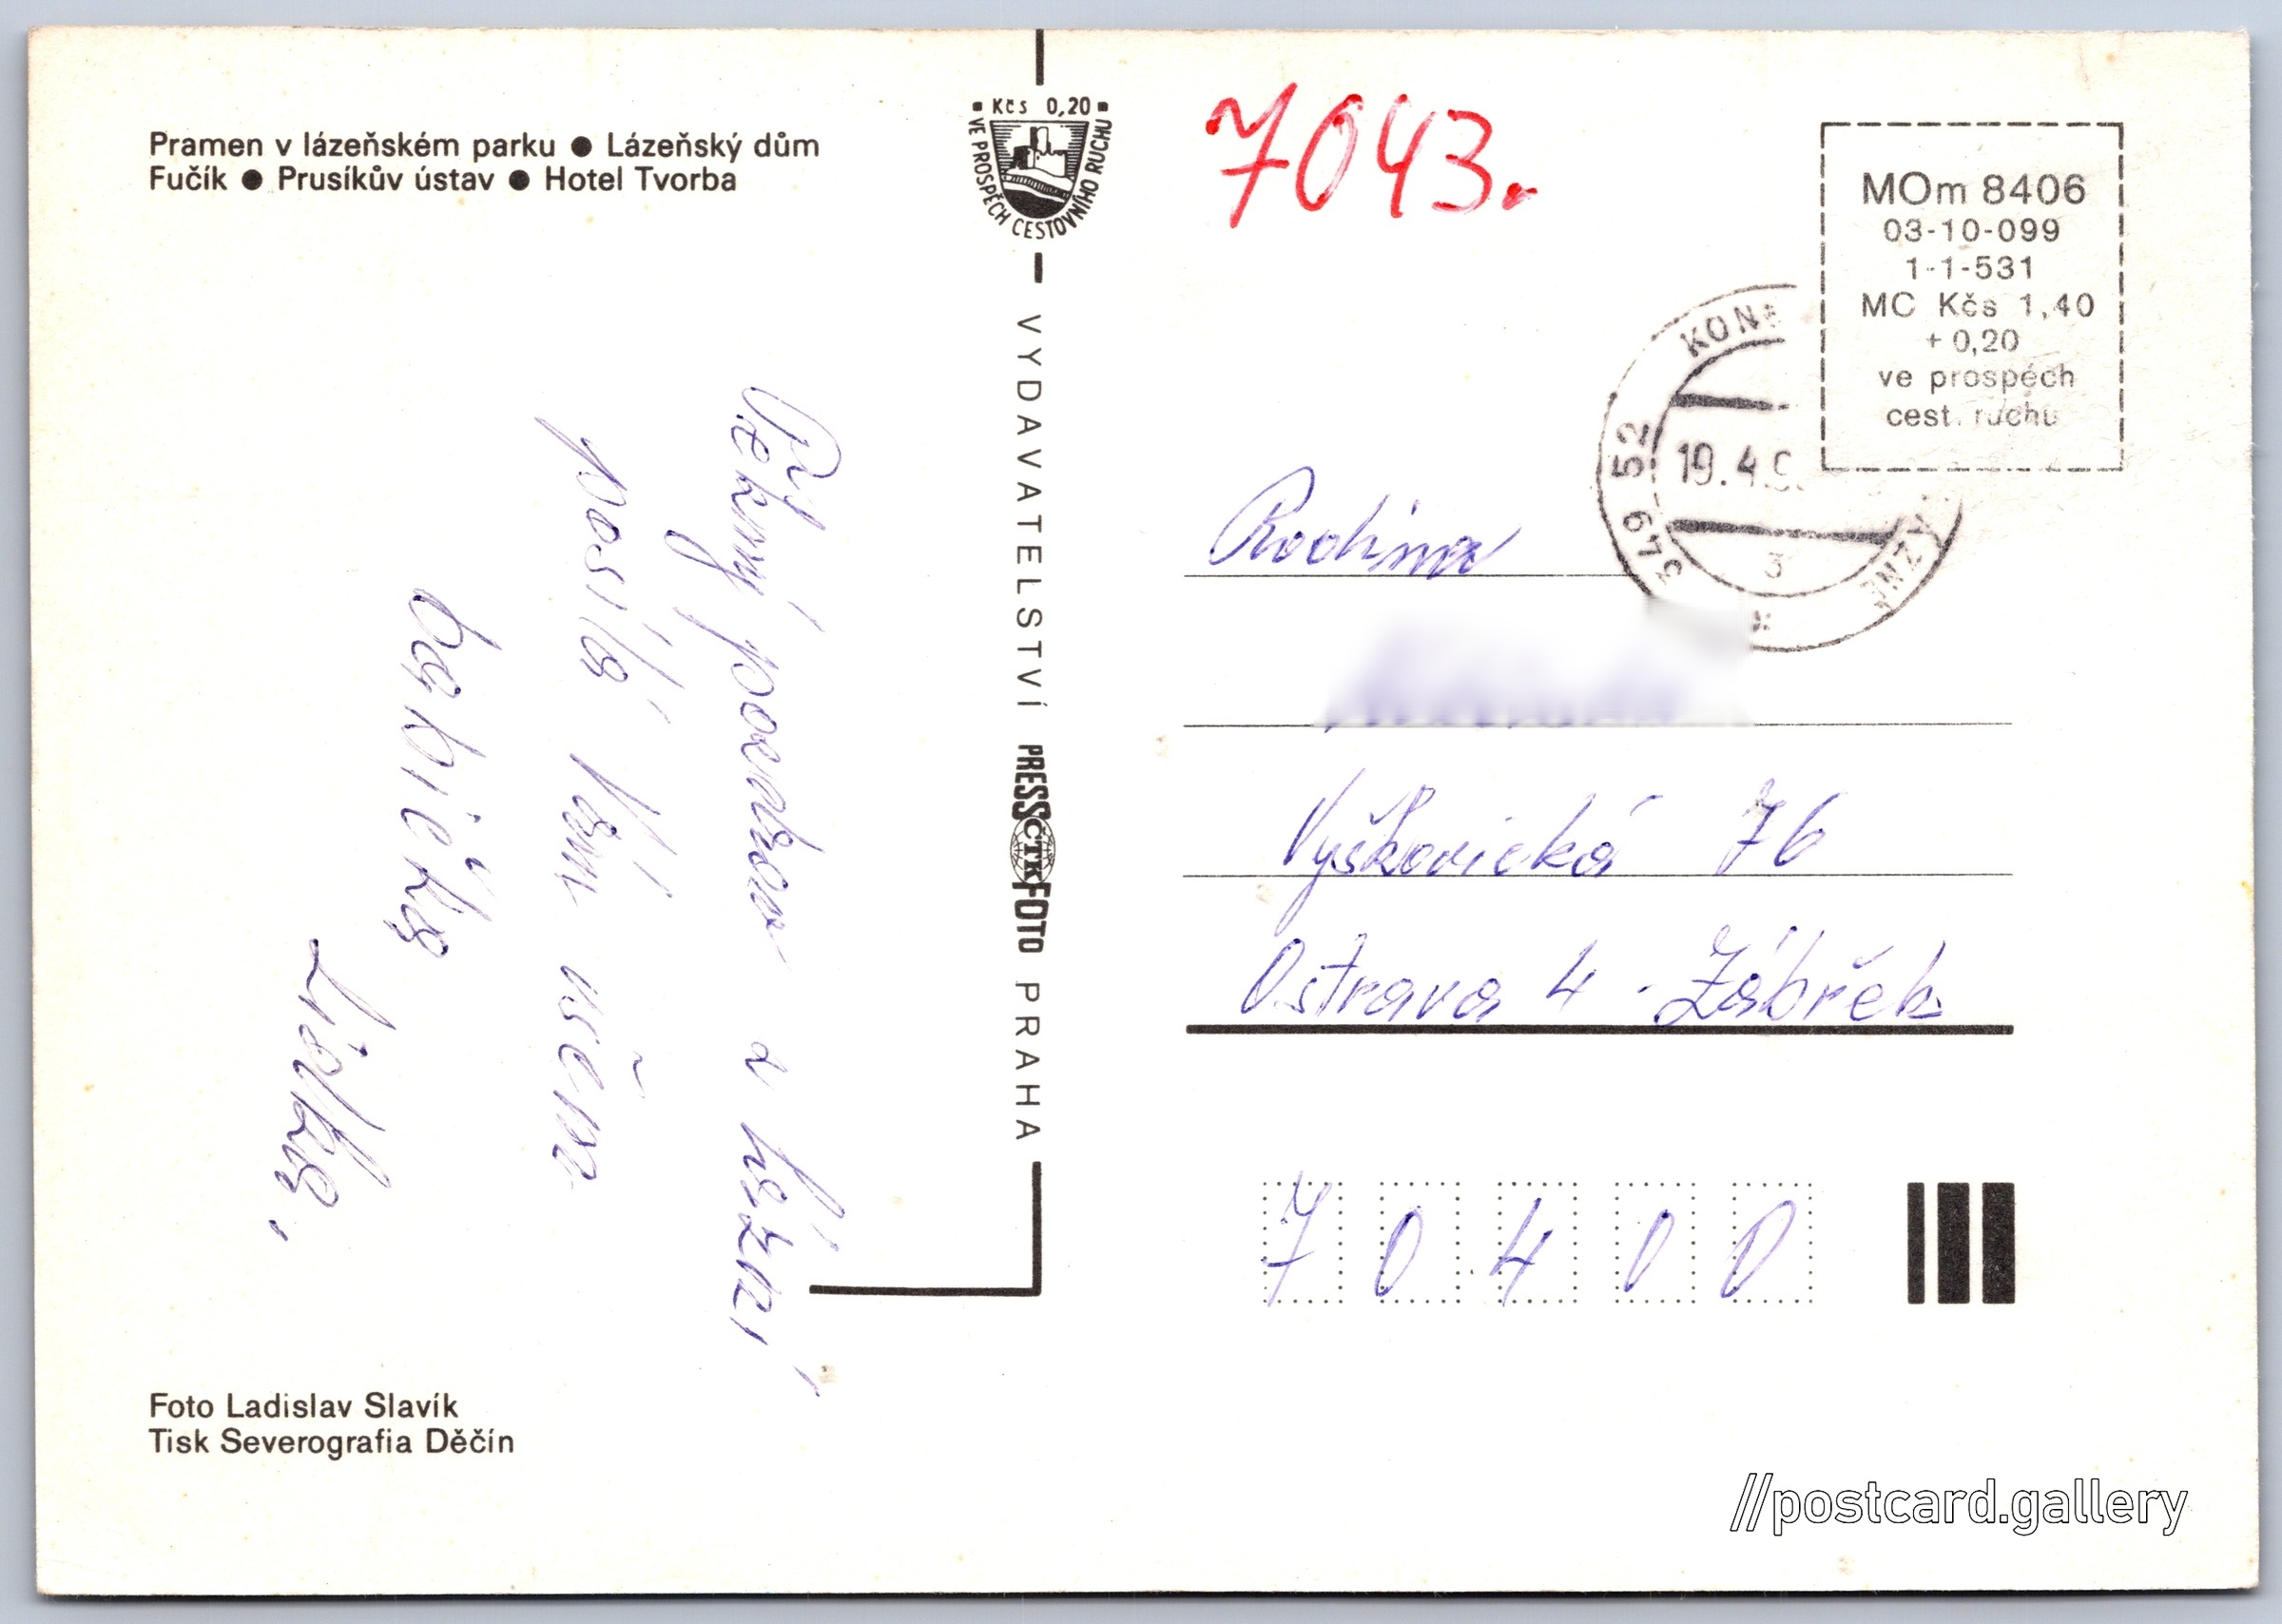 Pramen v lázeňském parku ● Lázeňský dům
Fučík ● Prusíkův ústav ● Hotel Tvorba
Kčs 0,20
VE PROSPĚCH CESTOVNÍHO RUCHU
VYDAVATELSTVÍ PRESSFOTO PRAHA
ČTK
Pěkný pozdrav z lázní
posílá Vám všem
babička
Lidka,
Foto Ladislav Slavík
Tisk Severografia Děčín
7043.
MOm 8406
03-10-099
1-1-531
MC Kčs 1,40
+ 0,20
ve prospěch
cest. ruchu
KON
379 52
19.4.9
3
ZNĚ
Rodina
Výškovická 76
Ostrava 4 - Zábřeh
70400
//postcard.gallery